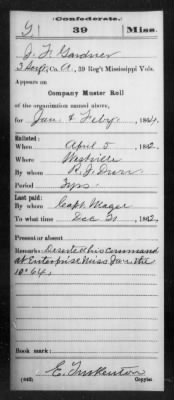 (Confederate.)
G | 39 | Miss.
J. F. Gardner
3 Sergt, Co. A, 39 Reg't Mississippi Vols.
Appears on
Company Muster Roll
of the organization named above,
for Jan. & Feby., 1864.
Enlisted:
When April 5, 1862.
Where Westville
By whom R. J. Durr
Period 3 yrs
Last paid:
By whom Capt. Magee
To what time Dec 31, 1862.
Present or absent
Remarks: Deserted his command
at Enterprise Miss Jan the
10" 64.
Book mark:
E. Turkenton
(642) Copyist.